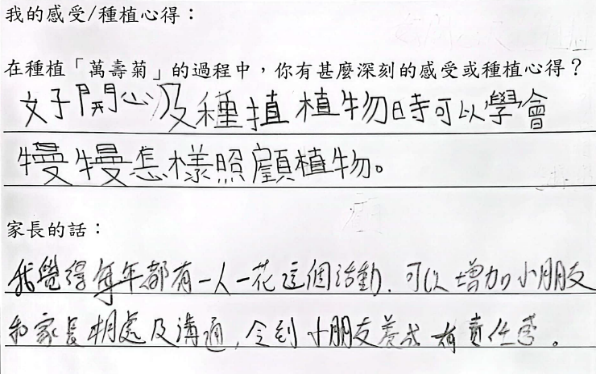 我的感受/種植心得：
在種植「萬壽菊」的過程中，你有甚麼深刻的感受或種植心得？
好開心及種植植物時可以學會
慢慢怎樣照顧植物。
家長的話：
我覺得每年都有一人一花這個活動，可以增加小朋友
和家長相處及溝通，令到小朋友養成有責任感。